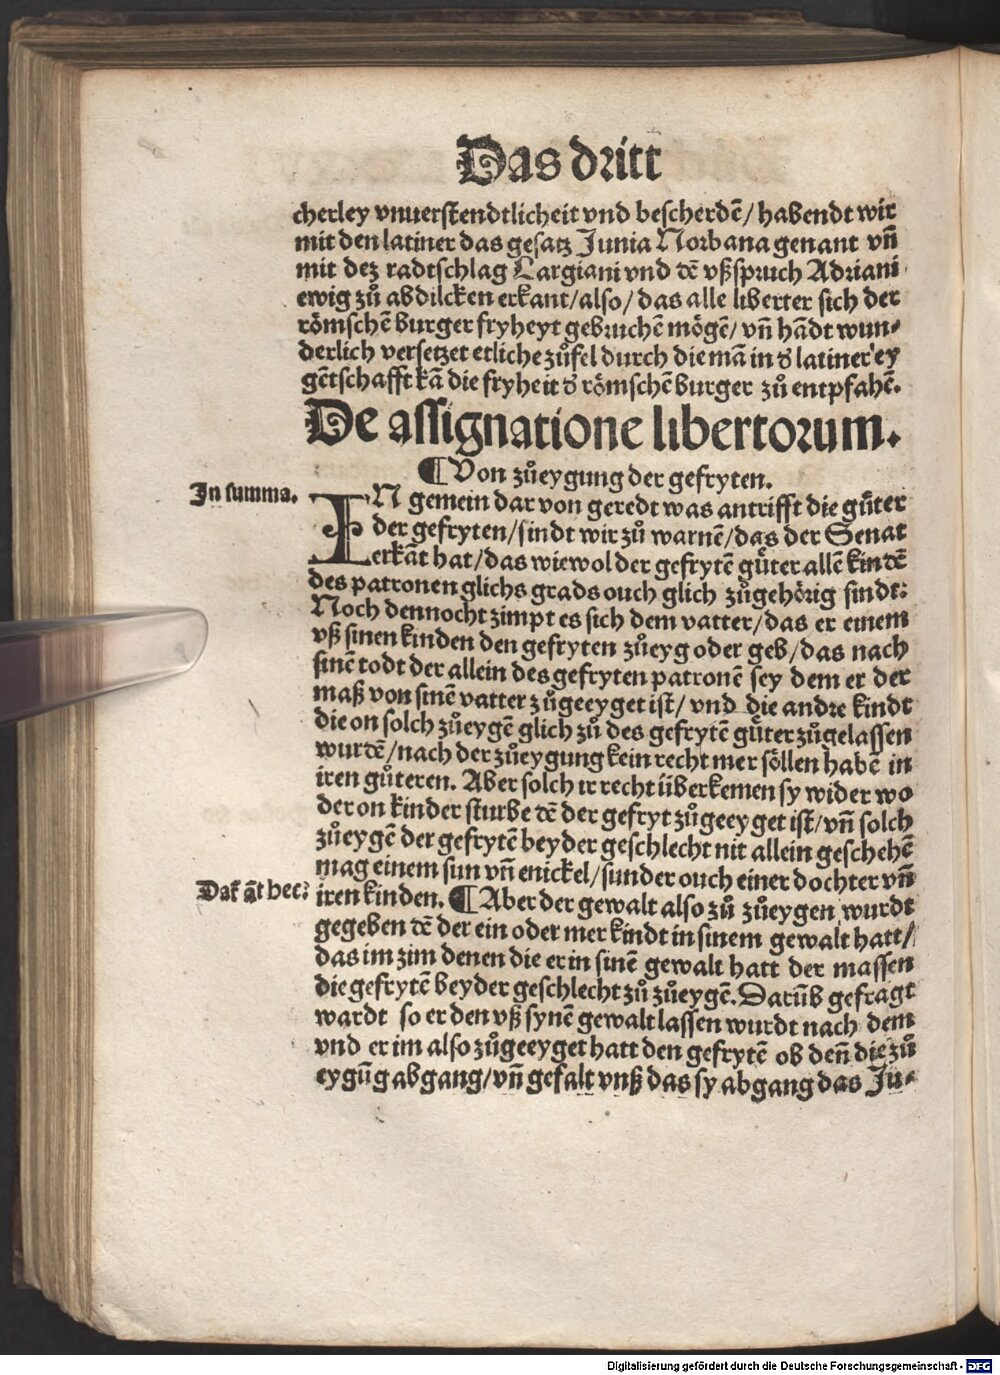 Das dritt
cherley vnuerstendtlicheit vnd bescherdē / habendt wir
mit den latiner das gesatz Junia Norbana genant vn̄
mit dez radtschlag Largiani vnd dē vßspruch Adriani
ewig zů abdilcken erkant / also / das alle liberter sich der
römschē burger fryheyt gebruchē mögē / vn̄ hādt wun⸗
derlich versetzet etliche zůfel durch die mā in d᷑ latiner ey
gētschafft kā die fryheit d᷑ römschē burger zů entpfahē.
De assignatione libertorum.
¶ Von zůeygung der gefryten.
In summa.
IN gemein dar von geredt was antrifft die gůter
der gefryten / sindt wir zů warnē / das der Senat
erkāt hat / das wiewol der gefrytē gůter allē kindē
des patronen glichs grads ouch glich zůgehörig sindt:
Noch dennocht zimpt es sich dem vatter / das er einem
vß sinen kinden den gefryten zůeyg oder geb / das nach
sinē todt der allein des gefryten patronē sey dem er der
maß von sinē vatter zůgeeyget ist / vnd die andre kindt
die on solch zůeygē glich zů des gefrytē gůter zůgelassen
wurdē / nach der zůeygung kein recht mer söllen habē in
iren gůteren. Aber solch ir recht überkemen sy wider wo
der on kinder sturbe dē der gefryt zůgeeyget ist / vn̄ solch
zůeygē der gefrytē beyder geschlecht nit allein geschehē
mag einem sun vn̄ enickel / sunder ouch einer dochter vn̄
Dat āt hec:
iren kinden. ¶ Aber der gewalt also zů zůeygen wurdt
gegeben dē der ein oder mer kindt in sinem gewalt hatt /
das im zim denen die er in sinē gewalt hatt der massen
die gefrytē beyder geschlecht zů zůeygē. Darūb gefragt
wardt so er den vß synē gewalt lassen wurdt nach dem
vnd er im also zůgeeyget hatt den gefrytē ob den̄ die zů
eygūg abgang / vn̄ gefalt vnß das sy abgang das Ju⸗
Digitalisierung gefördert durch die Deutsche Forschungsgemeinschaft - DFG